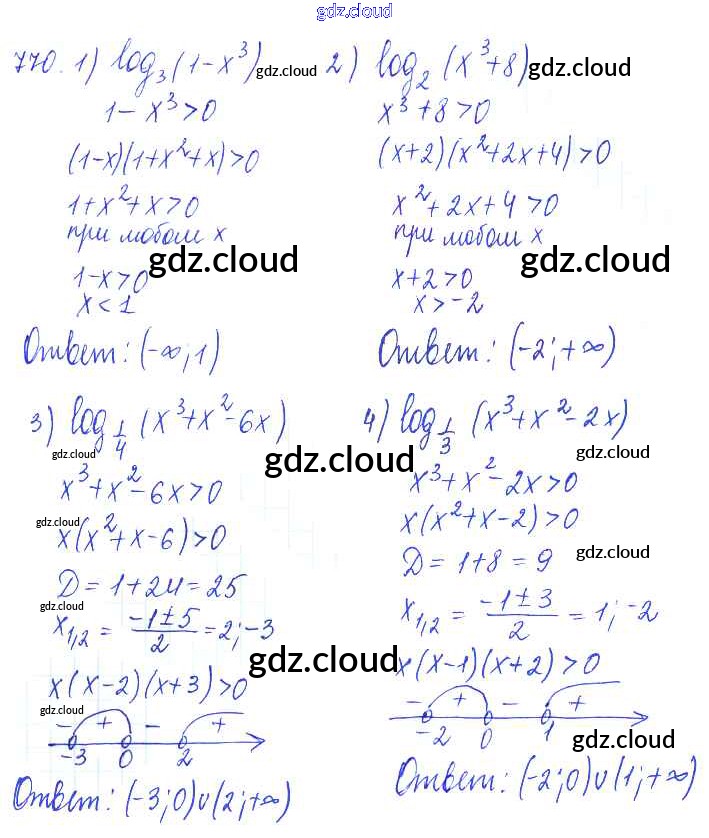 gdz.cloud
770. 1) log₃(1-x³) gdz.cloud
1-x³>0
(1-x)(1+x²+x)>0
1+x²+x>0
при любом x
gdz.cloud
1-x>0
x<1
Ответ: (-∞; 1)
2) log₂(x³+8) gdz.cloud
x³+8>0
(x+2)(x²+2x+4)>0
x²+2x+4>0
при любом x
gdz.cloud
x+2>0
x>-2
Ответ: (-2; +∞)
3) log_{1/4}(x³+x²-6x)
gdz.cloud
gdz.cloud
x³+x²-6x>0
gdz.cloud
x(x²+x-6)>0
D=1+24=25
gdz.cloud
x₁,₂ = (-1±5)/2 = 2; -3
gdz.cloud
x(x-2)(x+3)>0
gdz.cloud
- + - +
-3 0 2
Ответ: (-3; 0)∪(2; +∞)
4) log_{1/3}(x³+x²-2x)
x³+x²-2x>0
x(x²+x-2)>0
D=1+8=9 gdz.cloud
x₁,₂ = (-1±3)/2 = 1; -2
x(x-1)(x+2)>0
- + - +
-2 0 1
gdz.cloud
Ответ: (-2; 0)∪(1; +∞)